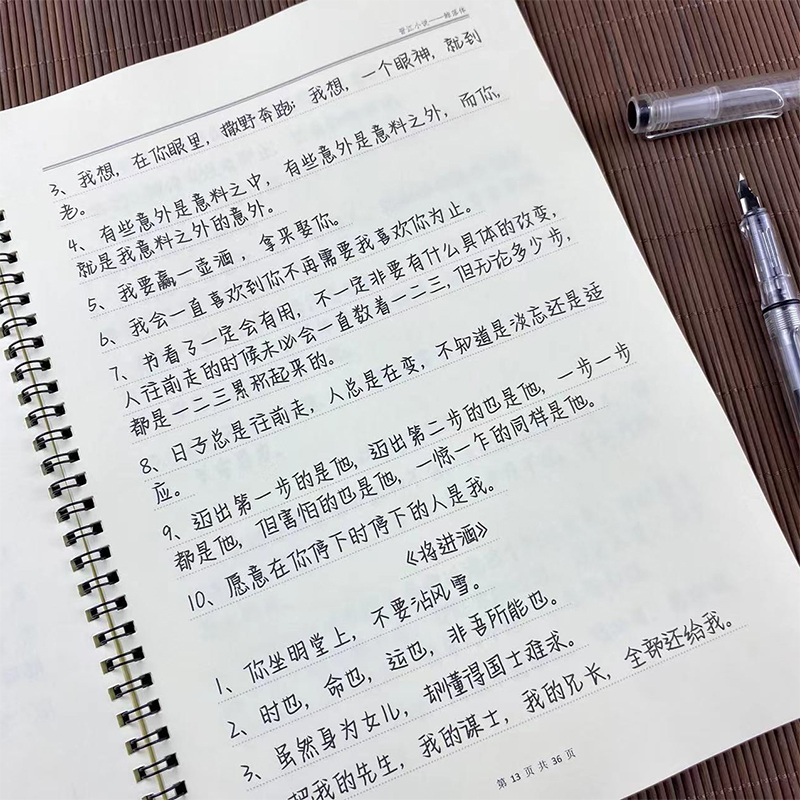 晋江小说——释落体
3、我想，在你眼里，撒野奔跑；我想，一个眼神，就到
老。
4、有些意外是意料之中，有些意外是意料之外，而你，
就是我意料之外的意外。
5、我要赢一壶酒，拿来娶你。
6、我会一直喜欢到你不再需要我喜欢你为止。
7、书看了一定会有用，不一定非要有什么具体的改变，
人往前走的时候未必会一直数着一二三，但无论多少步，
都是一二三累积起来的。
8、日子总是往前走，人总是在变，不知道是淡忘还是适
应。
9、迈出第一步的是他，迈出第二步的也是他，一步一步
都是他，但害怕的也是他，一惊一乍的同样是他。
10、愿意在你停下时停下的人是我。
《将进酒》
1、你坐明堂上，不要沾风雪。
2、时也，命也，运也，非吾所能也。
3、虽然身为女儿，却懂得国士难求。
把我的先生，我的谋士，我的兄长，全部还给我。
第 13 页 共 36 页